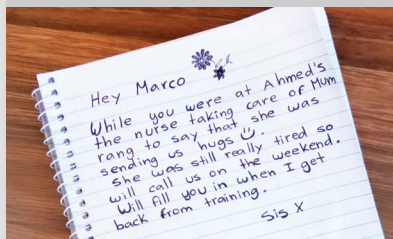 Hey Marco
While you were at Ahmed's
the nurse taking care of Mum
rang to say that she was
sending us hugs ☺.
She was still really tired so
will call us on the weekend.
Will fill you in when I get
back from training.
Sis X